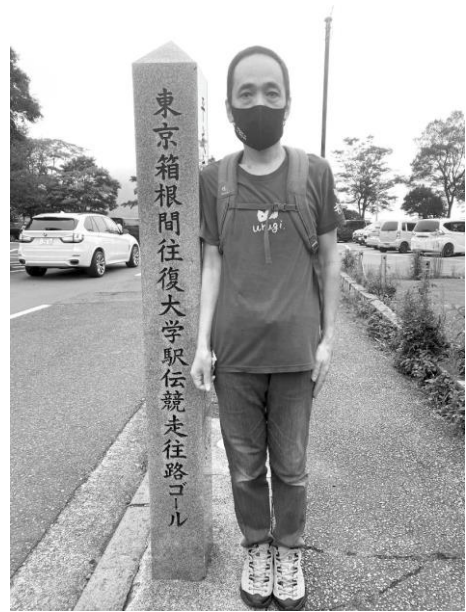 東京箱根間往復大学駅伝競走往路ゴール
usagi.